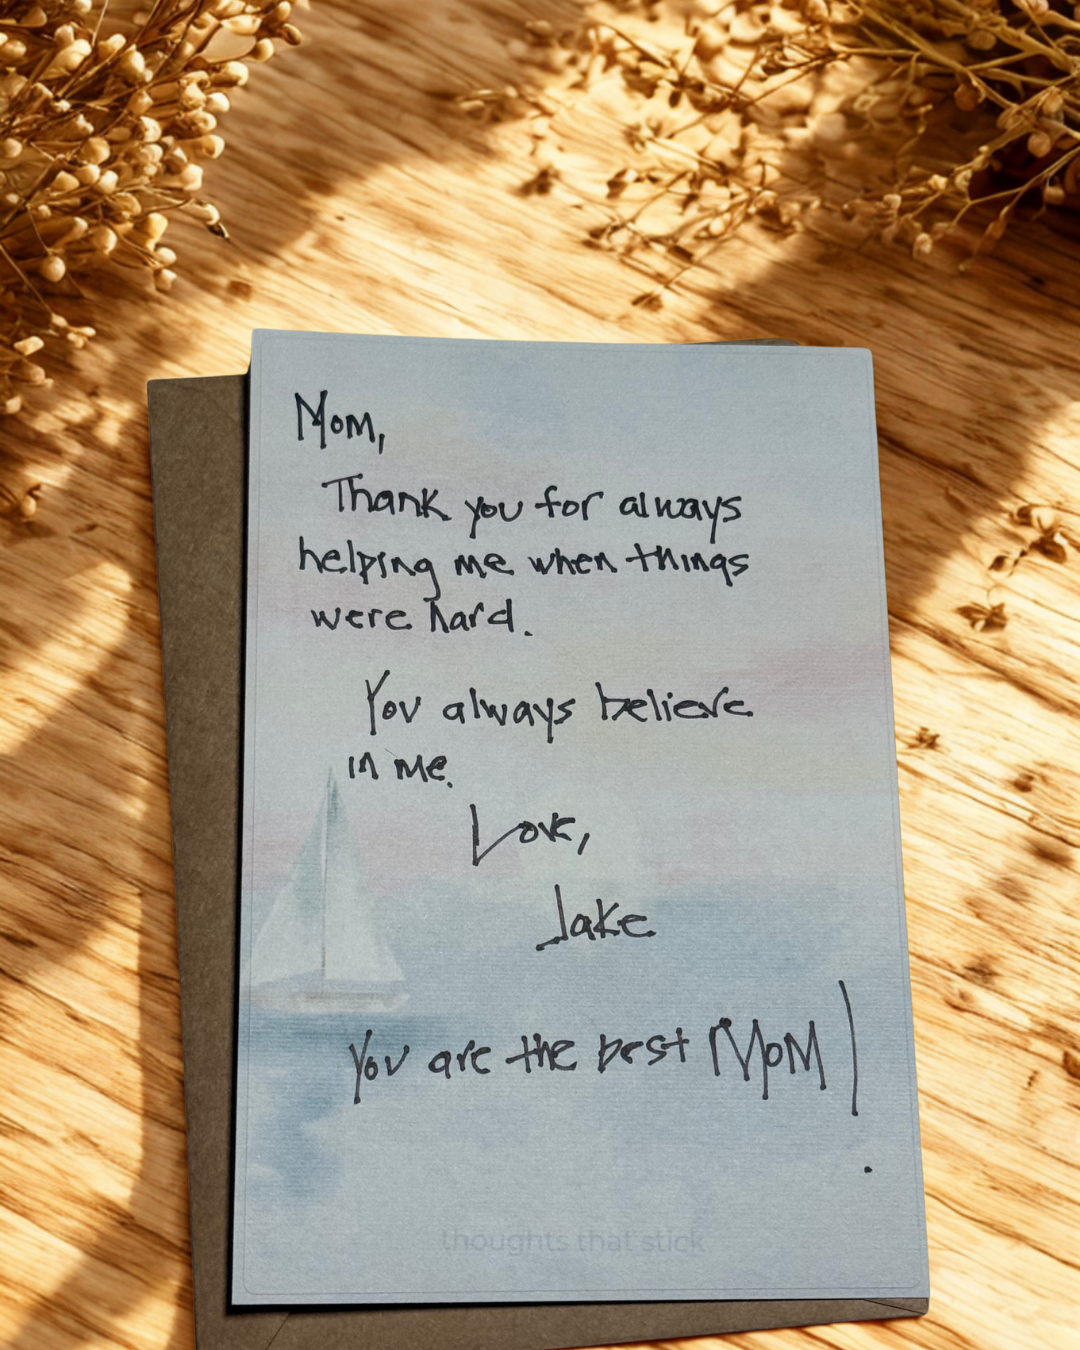 Mom,
Thank you for always
helping me when things
were hard.
You always believe
in me.
Love,
Jake
You are the best MoM!
thoughts that stick